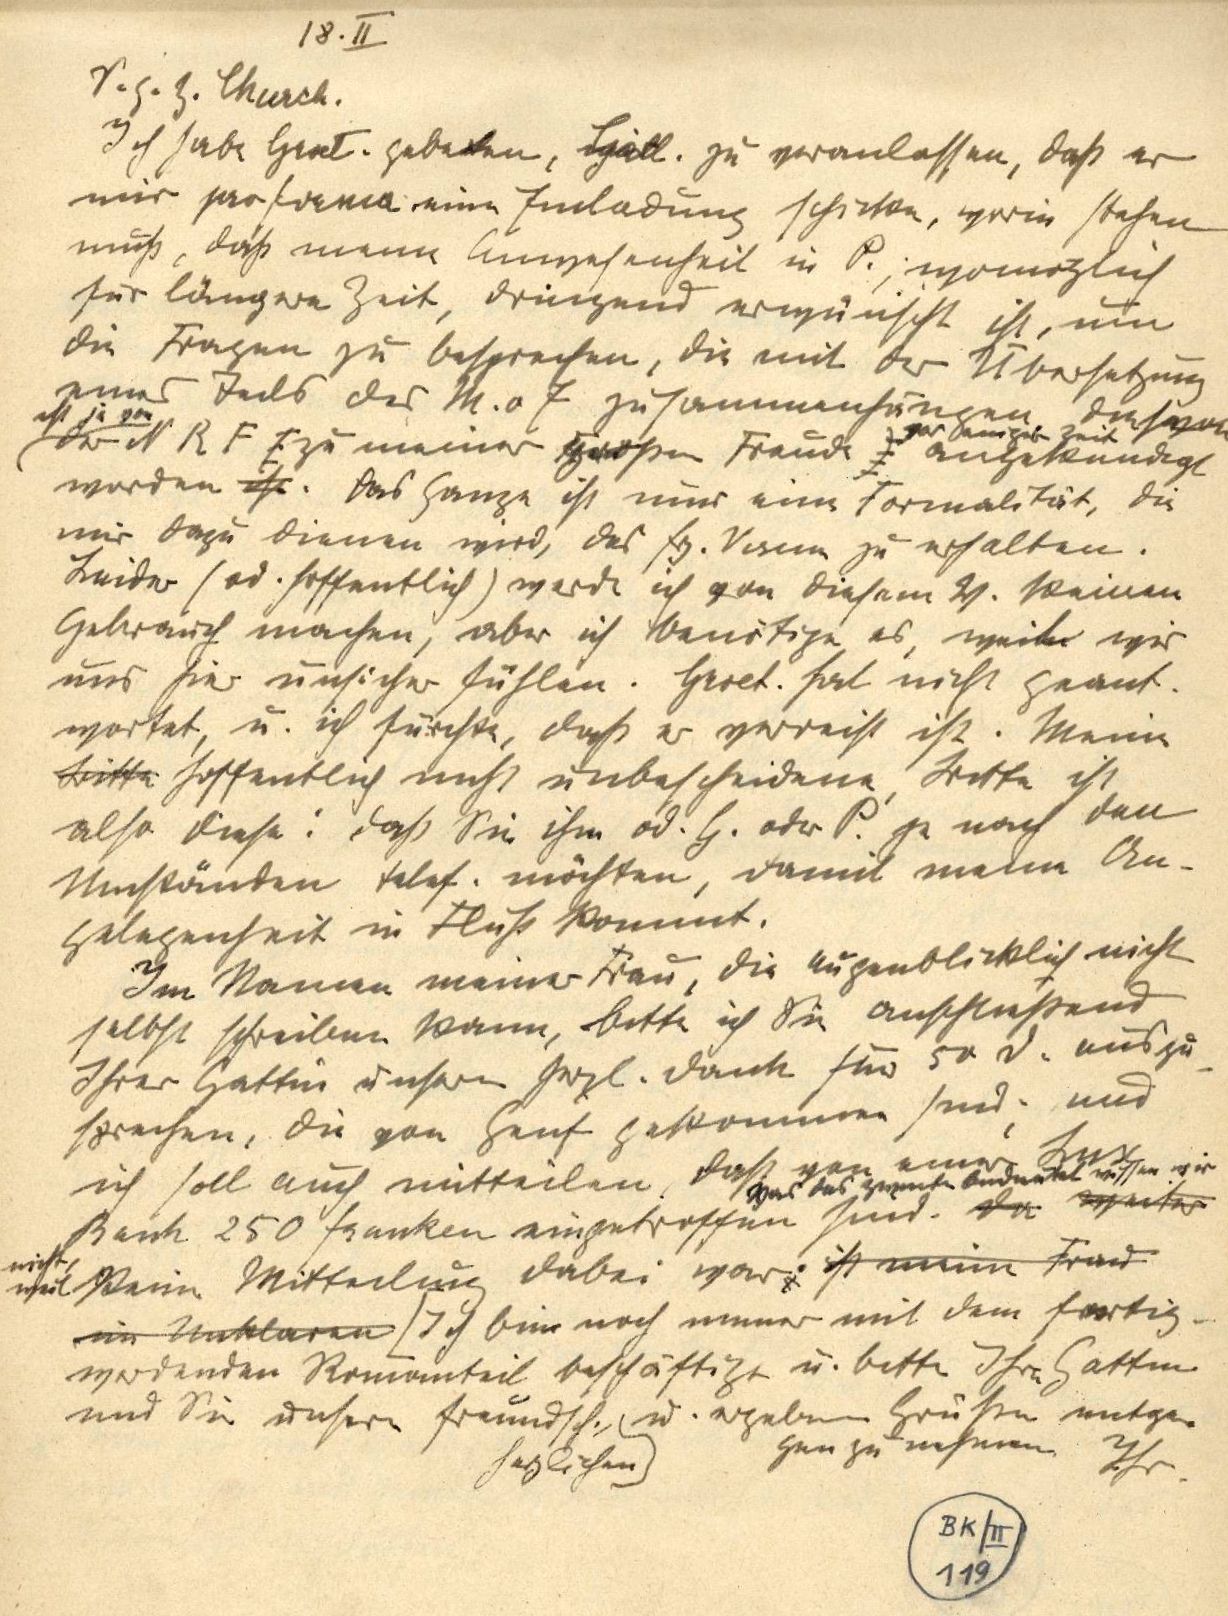 18.II
V. g. H. Church.
Ich habe Groet. gebeten, Gall. zu veranlassen, daß er
mir pro forma eine Einladung schicke, worin stehen
muß, daß meine Anwesenheit in P., womöglich
für längere Zeit, dringend erwünscht ist, um
die Fragen zu besprechen, die mit der Übersetzung
eines Teils des M. o E zusammenhängen, die
ist ja von
der N R F zu meiner großen Freude vor einiger Zeit angekündigt
worden ist. Das Ganze ist nur eine Formalität, die
mir dazu dienen wird, das frz. Visum zu erhalten.
Leider (od. hoffentlich) werde ich von diesem V. keinen
Gebrauch machen, aber ich benötige es, weil wir
uns hier unsicher fühlen. Groet. hat nicht geant-
wortet, u. ich fürchte, daß er verreist ist. Meine
Bitte hoffentlich nicht unbescheidene, Bitte ist
also diese: daß Sie ihm od. G. oder P. je nach den
Umständen telef. möchten, damit meine An-
gelegenheit in Fluß kommt.
Im Namen meiner Frau, die augenblicklich nicht
selbst schreiben kann, bitte ich Sie anschließend
Ihrer Gattin unseren herzl. Dank für 50 d. auszu-
sprechen, die von Genf gekommen sind; und
ich soll auch mitteilen, daß von einer Lux
Bank 250 Franken eingetroffen sind. Was das zweite bedeutet wissen wir da weiter
nicht,
weil keine Mitteilung dabei war. ist meine Frau
im Unklaren (Ich bin noch immer mit dem fertig-
werdenden Romanteil beschäftigt u. bitte Ihre Gattin
und Sie unsere freundsch., u. ergebenen Grüße entge-
herzlichen) gen zu nehmen Ihr
BK/II
119